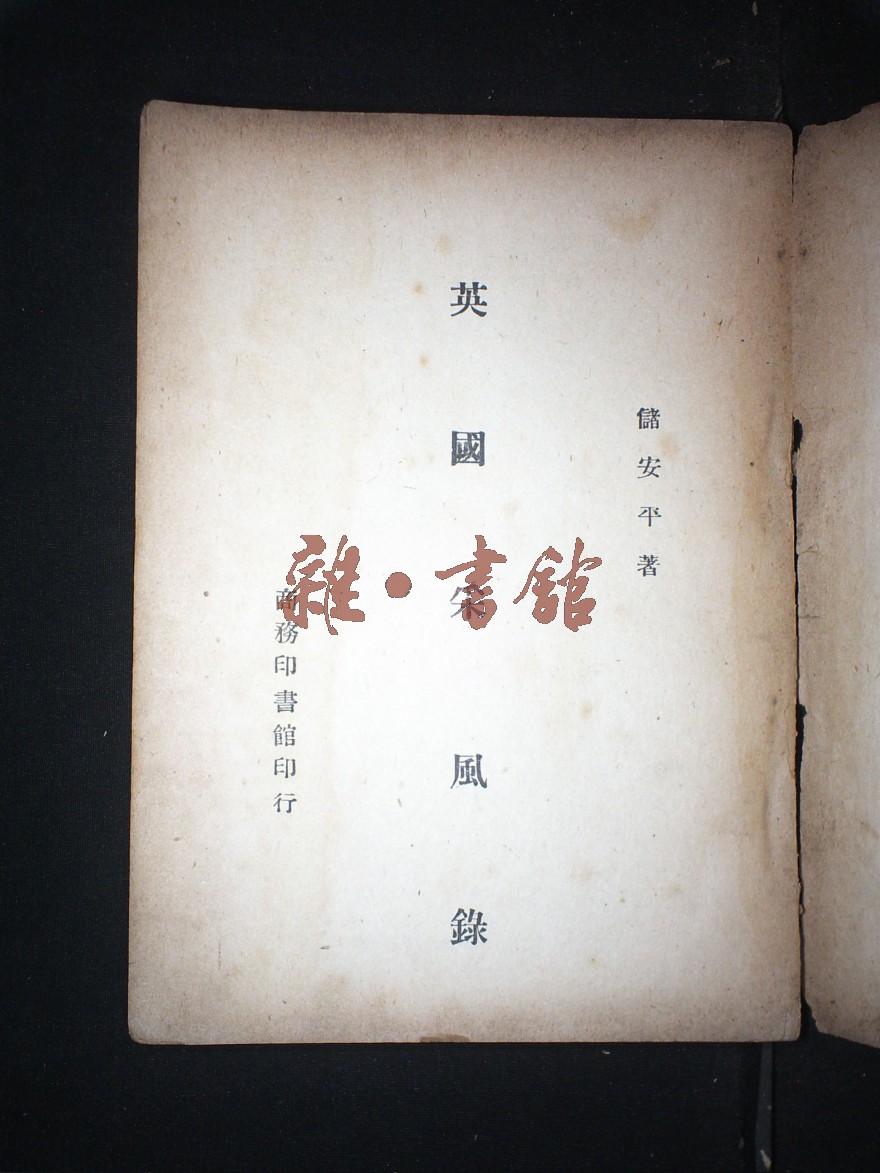 儲安平著
英國采風錄
商務印書館印行
雜·書館